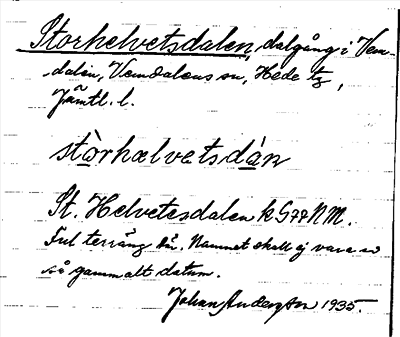 Storhelvetsdalen, dalgång i Vem-
dalen, Vemdalens sn, Hede tg,
Jämtl. l.
stòrhælvetsdán
St. Helvetesdalen k. G77NM.
Ful terräng här. Namnet skall ej vara av
så gammalt datum.
Johan Anderson 1935.